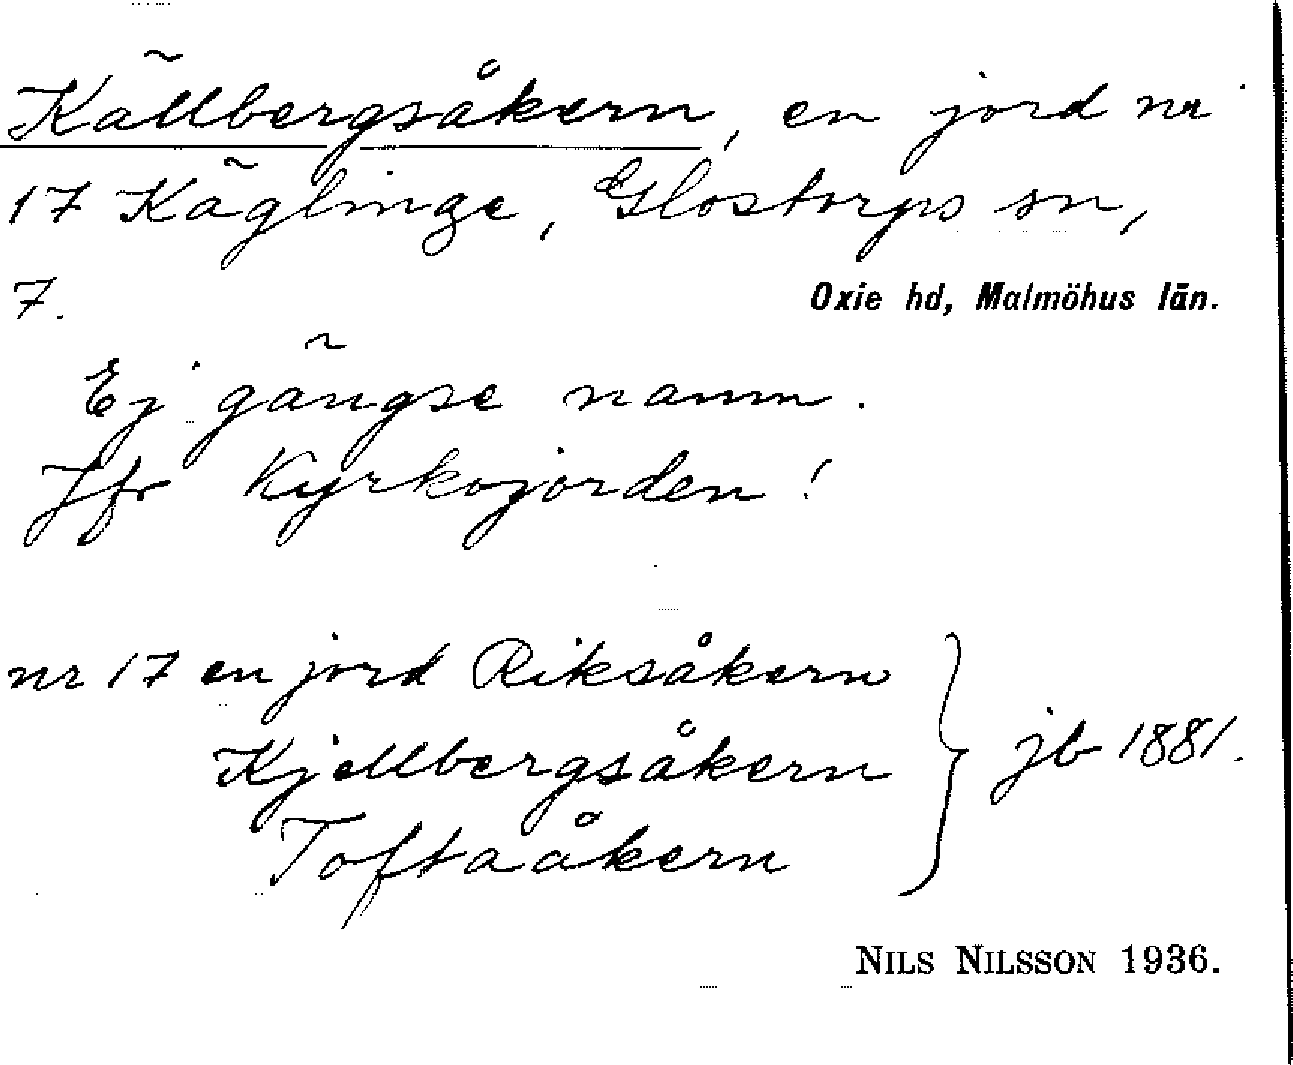 Källbergsåkern, en jord nr
17 Käglinge, Glostorps sn,
7.
Oxie hd, Malmöhus län.
Ej gängse namn.
Jfr Kyrkojorden!
nr 17 en jord Riksåkern
Kjellbergsåkern
Toftaåkern
jb 1881.
NILS NILSSON 1936.